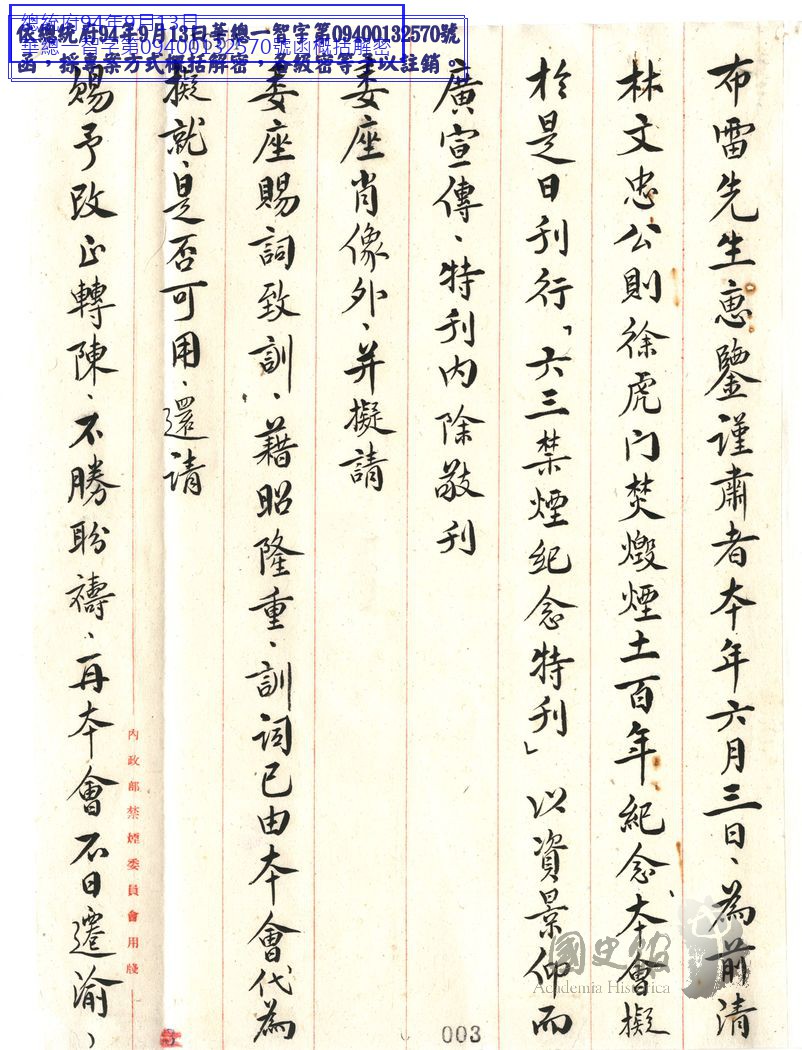 總統府94年9月13日
華總一智字第09400132570號函概括解密
依總統府94年9月13日華總一智字第09400132570號
函，採專案方式概括解密，各級密等予以註銷。
布雷先生惠鑒謹肅者本年六月三日、為前清
林文忠公則徐虎門焚燬煙土百年紀念、本會擬
於是日刊行「六三禁煙紀念特刊」以資景仰而
廣宣傳、特刊內除敬刊
委座肖像外、并擬請
委座賜詞致訓、藉昭隆重、訓詞已由本會代為
擬就、是否可用、還請
賜予改正轉陳、不勝盼禱、再本會不日遷渝、
內政部禁煙委員會用牋
國史館
Academia Historica
003